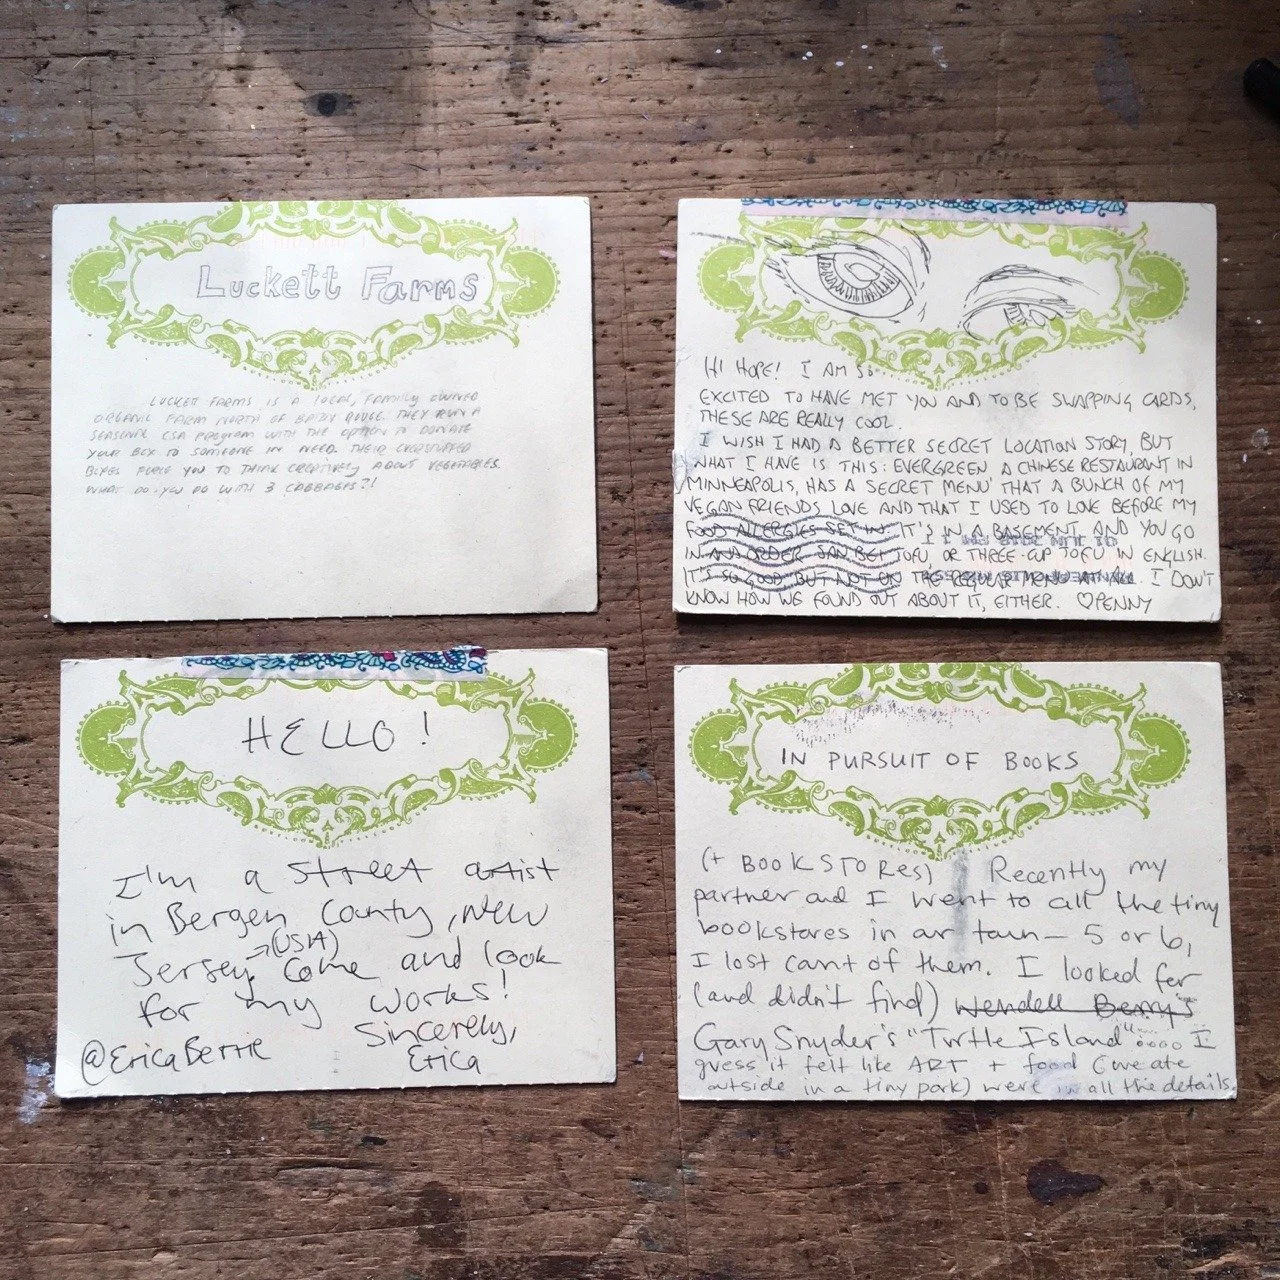 Luckett Farms
LUCKETT FARMS IS A LOCAL, FAMILY OWNED
ORGANIC FARM NORTH OF BATON ROUGE. THEY RUN A
SEASONAL CSA PROGRAM WITH THE OPTION TO DONATE
YOUR BOX TO SOMEONE IN NEED. THEIR OVERSTUFFED
BOXES FORCE YOU TO THINK CREATIVELY ABOUT VEGETABLES.
WHAT DO YOU DO WITH 3 CABBAGES?!
HI HOPE! I AM SO
EXCITED TO HAVE MET YOU AND TO BE SWAPPING CARDS,
THESE ARE REALLY COOL.
I WISH I HAD A BETTER SECRET LOCATION STORY, BUT
WHAT I HAVE IS THIS: EVERGREEN A CHINESE RESTAURANT IN
MINNEAPOLIS, HAS A 'SECRET MENU' THAT A BUNCH OF MY
VEGAN FRIENDS LOVE AND THAT I USED TO LOVE BEFORE MY
FOOD ALLERGIES SET IN. IT'S IN A BASEMENT, AND YOU GO
IN AND ORDER SAN BEI TOFU, OR THREE-CUP TOFU IN ENGLISH.
IT'S SO GOOD BUT NOT ON THE REGULAR MENU AT ALL. I DON'T
KNOW HOW WE FOUND OUT ABOUT IT, EITHER. ♡PENNY
HELLO!
I'm a street artist
in Bergen County, New
Jersey →(USA) Come and look
for my works!
Sincerely,
@EricaBertie Erica
IN PURSUIT OF BOOKS
(+ BOOKSTORES) Recently my
partner and I went to all the tiny
bookstores in our town - 5 or 6,
I lost count of them. I looked for
(and didn't find) Wendell Berry's
Gary Snyder's "Turtle Island".... I
guess it felt like ART + food (we ate
outside in a tiny park) were in all the details.